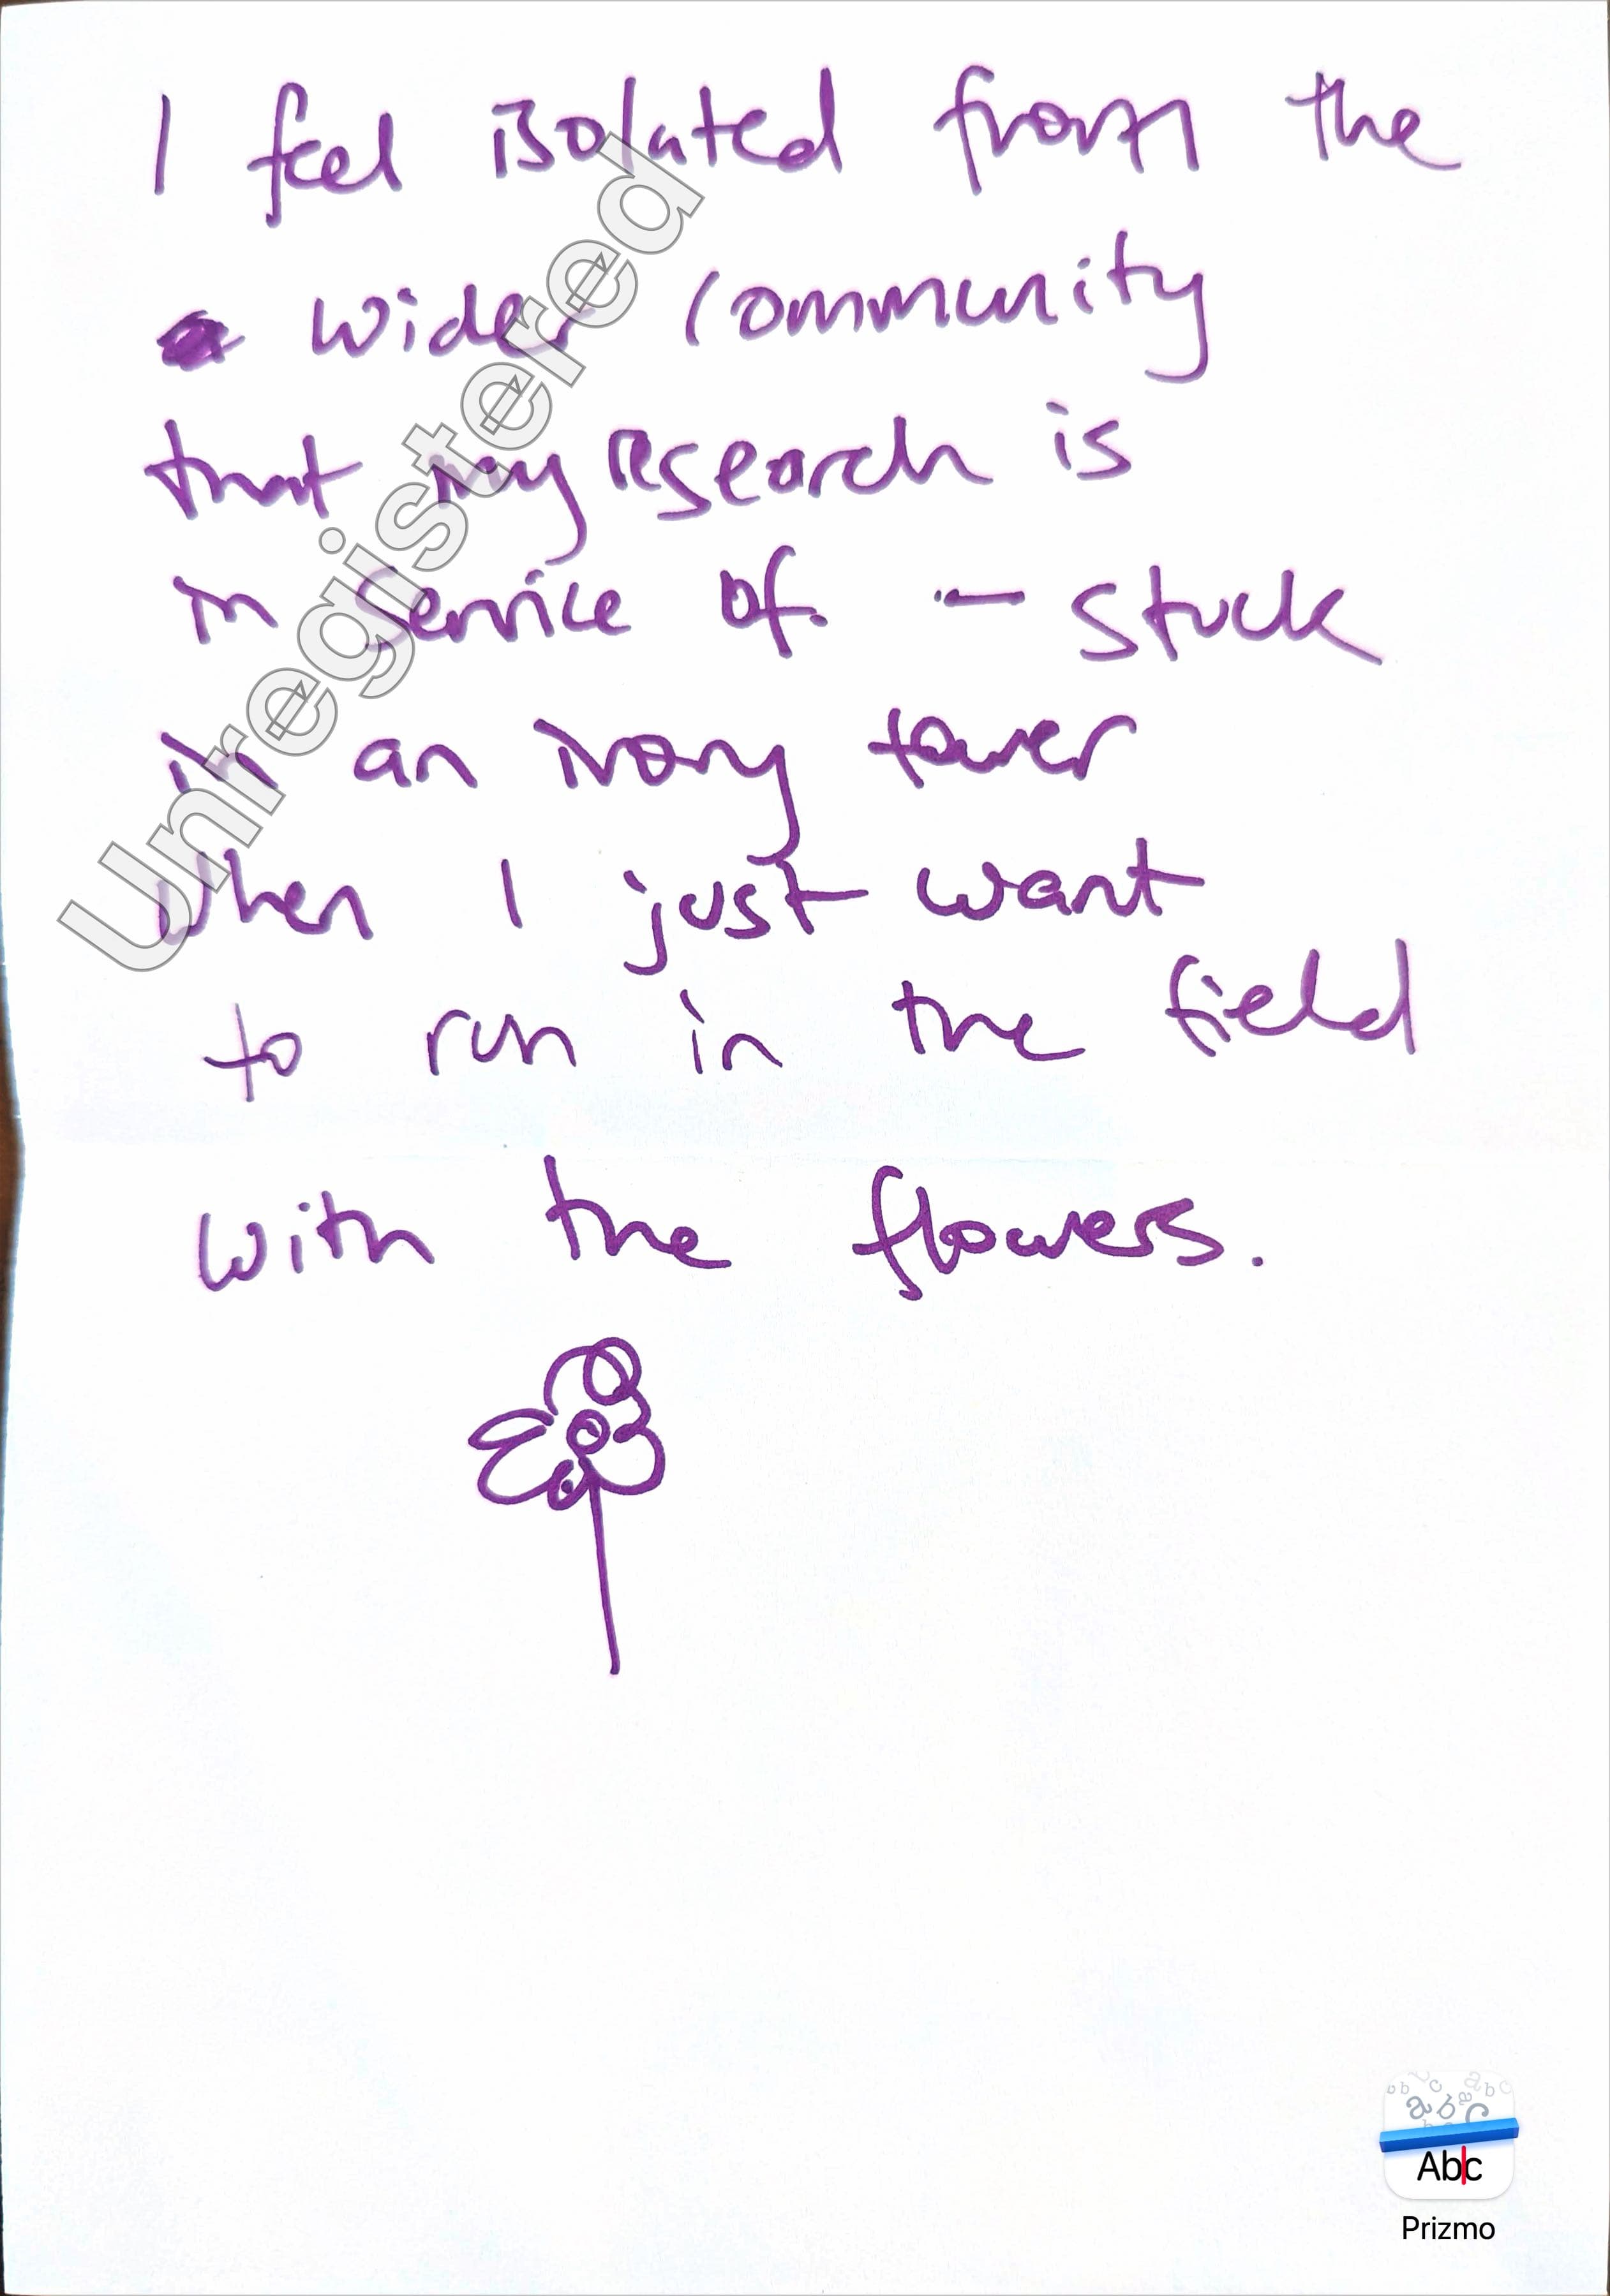 I feel isolated from the
wider community
that my research is
in service of. - stuck
in an ivory tower
when I just want
to run in the field
with the flowers.
Unregistered
Abc
Prizmo